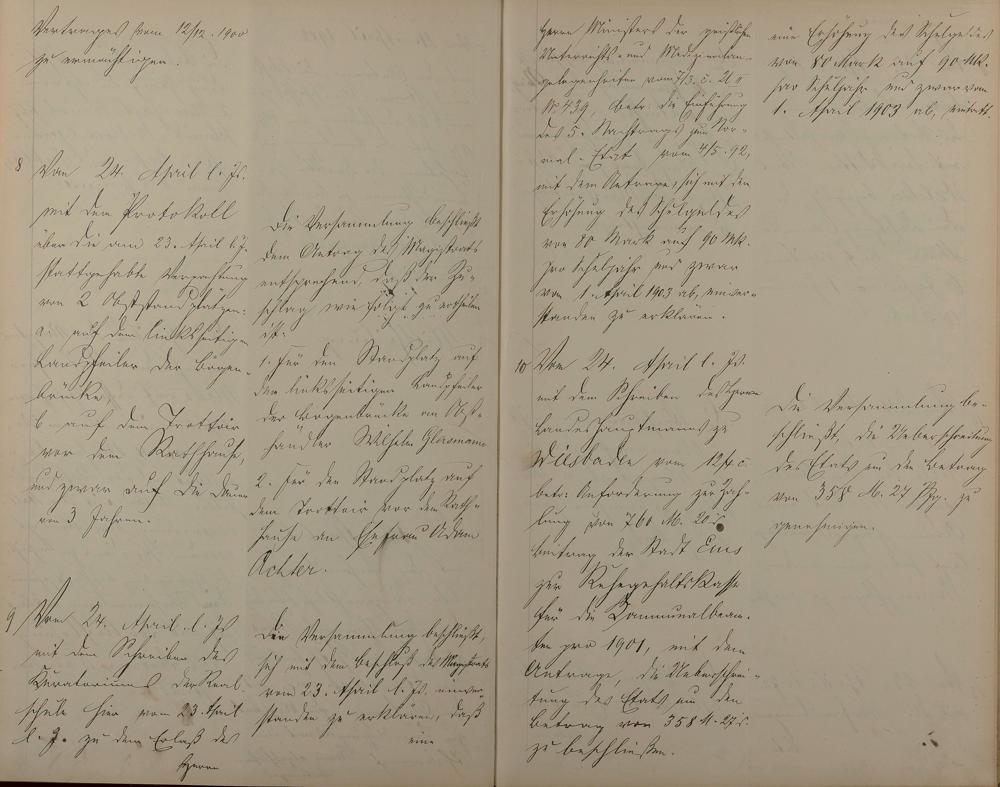 Vertrages vom 12/12. 1900
zu ermächtigen.
8
Vom 24. April l. Js.
mit dem Protokoll
über die am 23. April l. J.
stattgehabte Verpachtung
von 2 Obststandplätzen:
a. auf dem linksseitigen
Landpfeiler der Bogen-
brücke
b. auf dem Trottoir
vor dem Rathhause,
und zwar auf die Dauer
von 3 Jahren.
Die Versammlung beschließt
dem Antrag des Magistrats
entsprechend, daß der Zu-
schlag wie folgt zu ertheilen
ist:
1. Für den Standplatz auf
dem linksseitigen Landpfeiler
der Bogenbrücke an Obst-
händler Wilhelm Glasmann
2. Für den Standplatz auf
dem Trottoir vor dem Rath-
hause an Ehefrau Adam
Achter.
9
Vom 24. April l. Js.
mit dem Schreiben des
Kuratoriums der Real-
schule hier vom 23. April
l. J. zu dem Erlaß des
Herrn
Die Versammlung beschließt,
sich mit dem Beschluß des Magistrats
vom 23. April l. Js. einver-
standen zu erklären, daß
eine
Herrn Ministers der geistlichen
Unterrichts- und Medizinalan-
gelegenheiten vom 7/3. c. U II
No 439, betr. die Einführung
des 5. Nachtrags zum Nor-
mal-Etat vom 4/5. 92,
mit dem Antrage, sich mit der
Erhöhung des Schulgeldes
von 80 Mark auf 90 Mk.
pro Schuljahr und zwar
vom 1. April 1903 ab, einver-
standen zu erklären.
eine Erhöhung des Schulgeldes
von 80 Mark auf 90 Mk.
pro Schuljahr und zwar vom
1. April 1903 ab, eintritt.
10
Vom 24. April l. Js.
mit dem Schreiben des Herrn
Landeshauptmanns zu
Wiesbaden vom 12/4 c.
betr. Anforderung zur Zah-
lung von 760 M. 20
Beitrag der Stadt Ems
zur Ruhegehaltskasse
für die Kommunalbeam-
ten pro 1901, mit dem
Antrage, die Ueberschrei-
tung des Etats um den
Betrag von 358 M. 27
zu beschließen.
Die Versammlung be-
schließt, die Ueberschreitung
des Etats um den Betrag
von 358 M. 27 Pfg. zu
genehmigen.